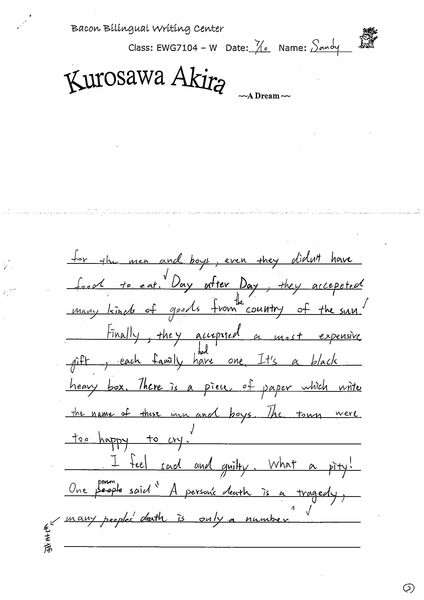 Bacon Bilingual Writing Center
Class: EWG7104 – W Date: 7/10 Name: Sandy
Kurosawa Akira
~~A Dream~~
for the men and boys, even they didn't have
food to eat. Day after Day, they accepeted
many kinds of goods from the country of the sun!
Finally, they accepeted a most expensive
gift, each family have had one. It's a black
heavy box. There is a piece of paper which write
the name of those men and boys. The town were
too happy to cry!
I feel sad and guilty. What a pity!
One people person said " A person's death is a tragedy,
many peoples' death is only a number "
②